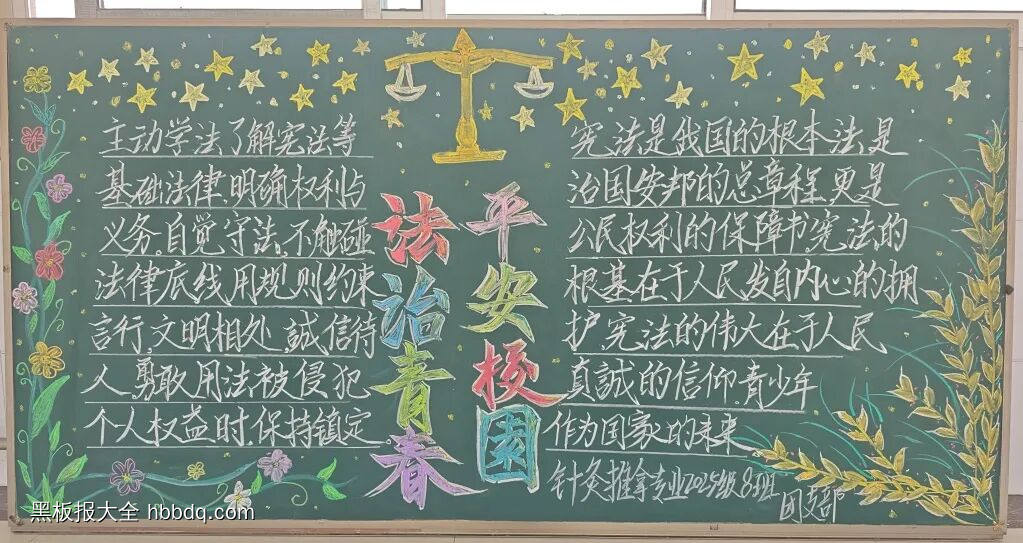 主动学法了解宪法等
基础法律,明确权利与
义务,自觉守法,不触碰
法律底线,用规则约束
言行,文明相处,誠信待
人,勇敢用法被侵犯
个人权益时,保持镇定
法治青春
平安校园
宪法是我国的根本法,是
治国安邦的总章程,更是
公民权利的保障书,宪法的
根基在于人民发自内心的拥
护,宪法的伟大在于人民
真誠的信仰.青少年
作为国家的未来
针灸推拿专业2025级8班
团支部
黑板报大全 hbbdq.com